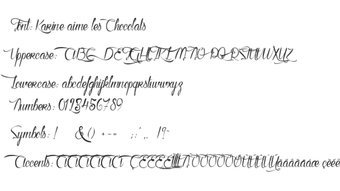 Font: Karine aime les Chocolats
Uppercase: ABC DEFGHIJKLMNOPQRSTUVWXYZ
Lowercase: abcdefghijklmnopqrstuvwxyz
Numbers: 0123456789
Symbols: ! & () +-= :;"., !?-
Accents: